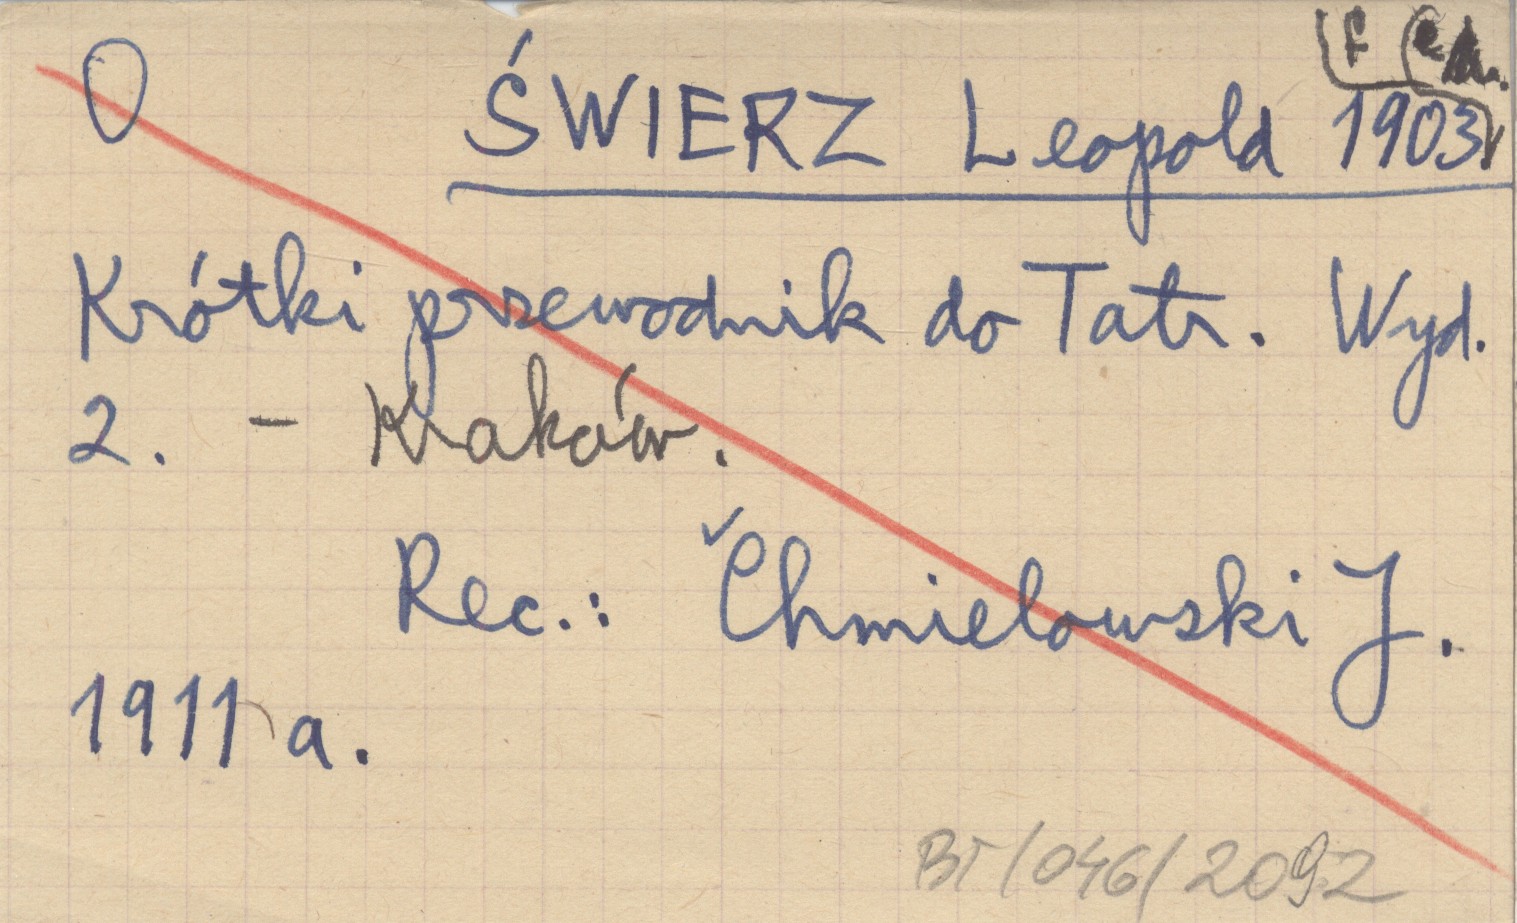 O ŚWIERZ Leopold 1903
Krótki przewodnik do Tatr. Wyd.
2. - Kraków.
Rec.: Chmielowski J.
1911 a.
BT/046/2092